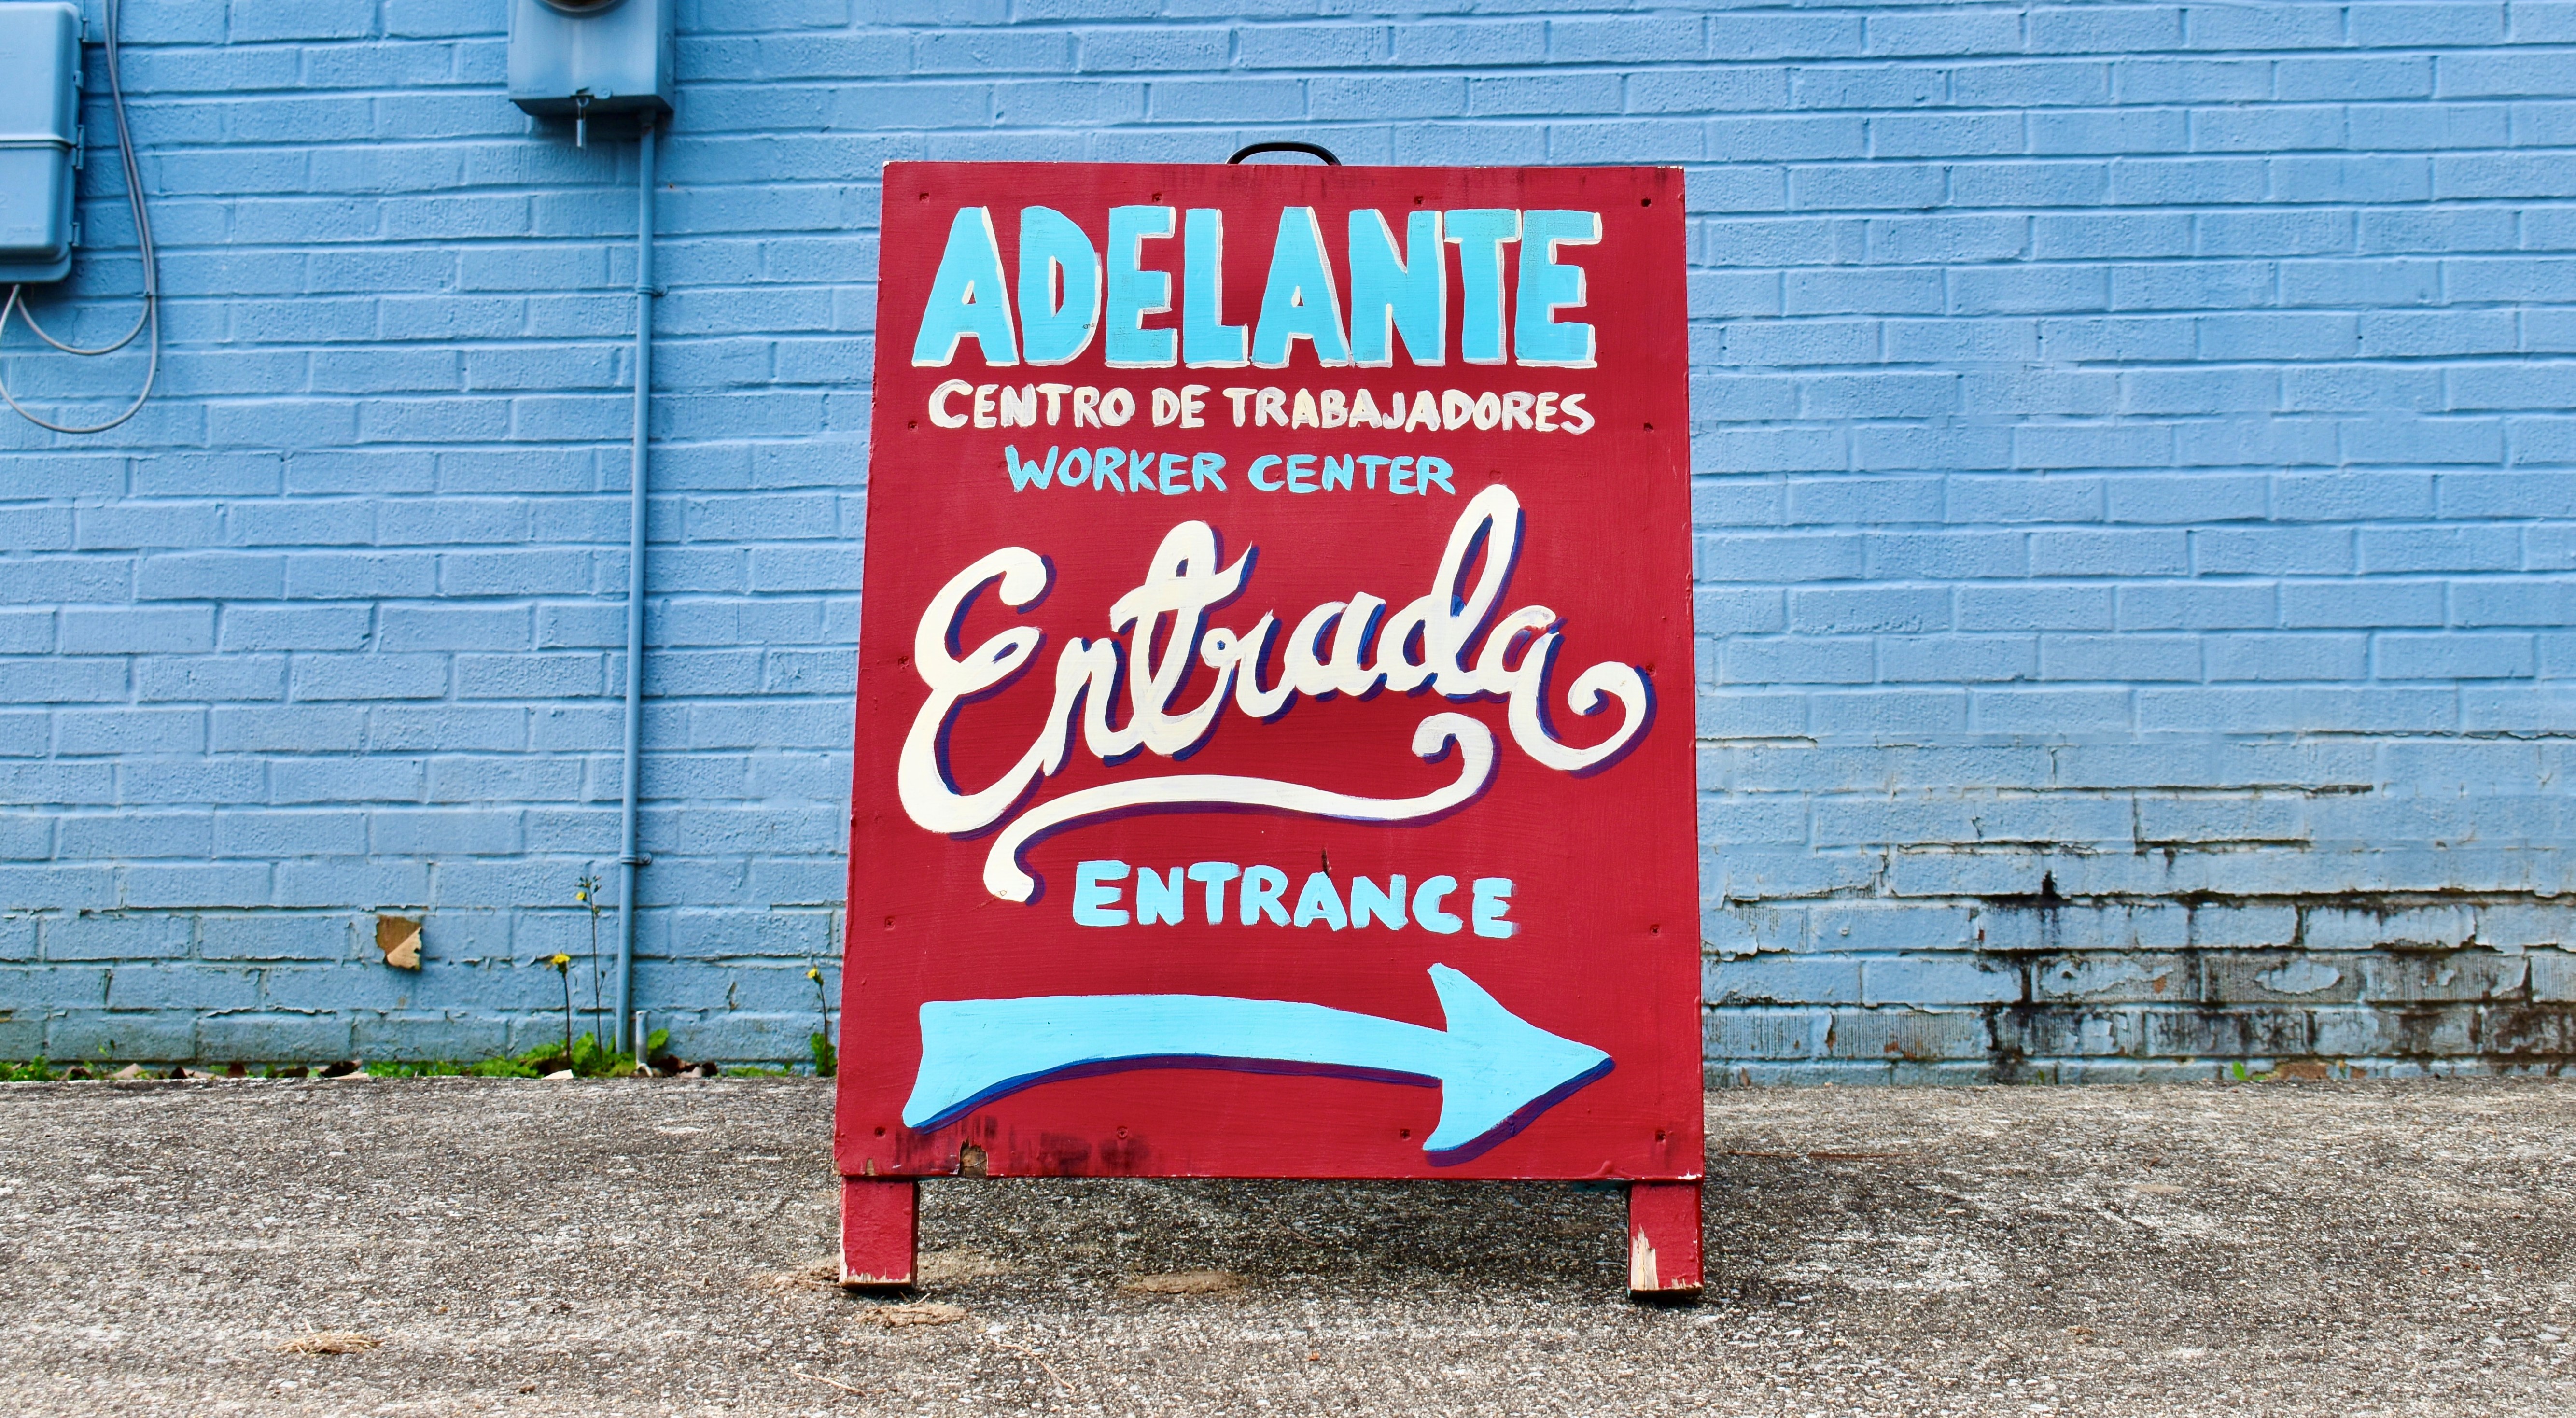 ADELANTE
CENTRO DE TRABAJADORES
WORKER CENTER
Entrada
ENTRANCE